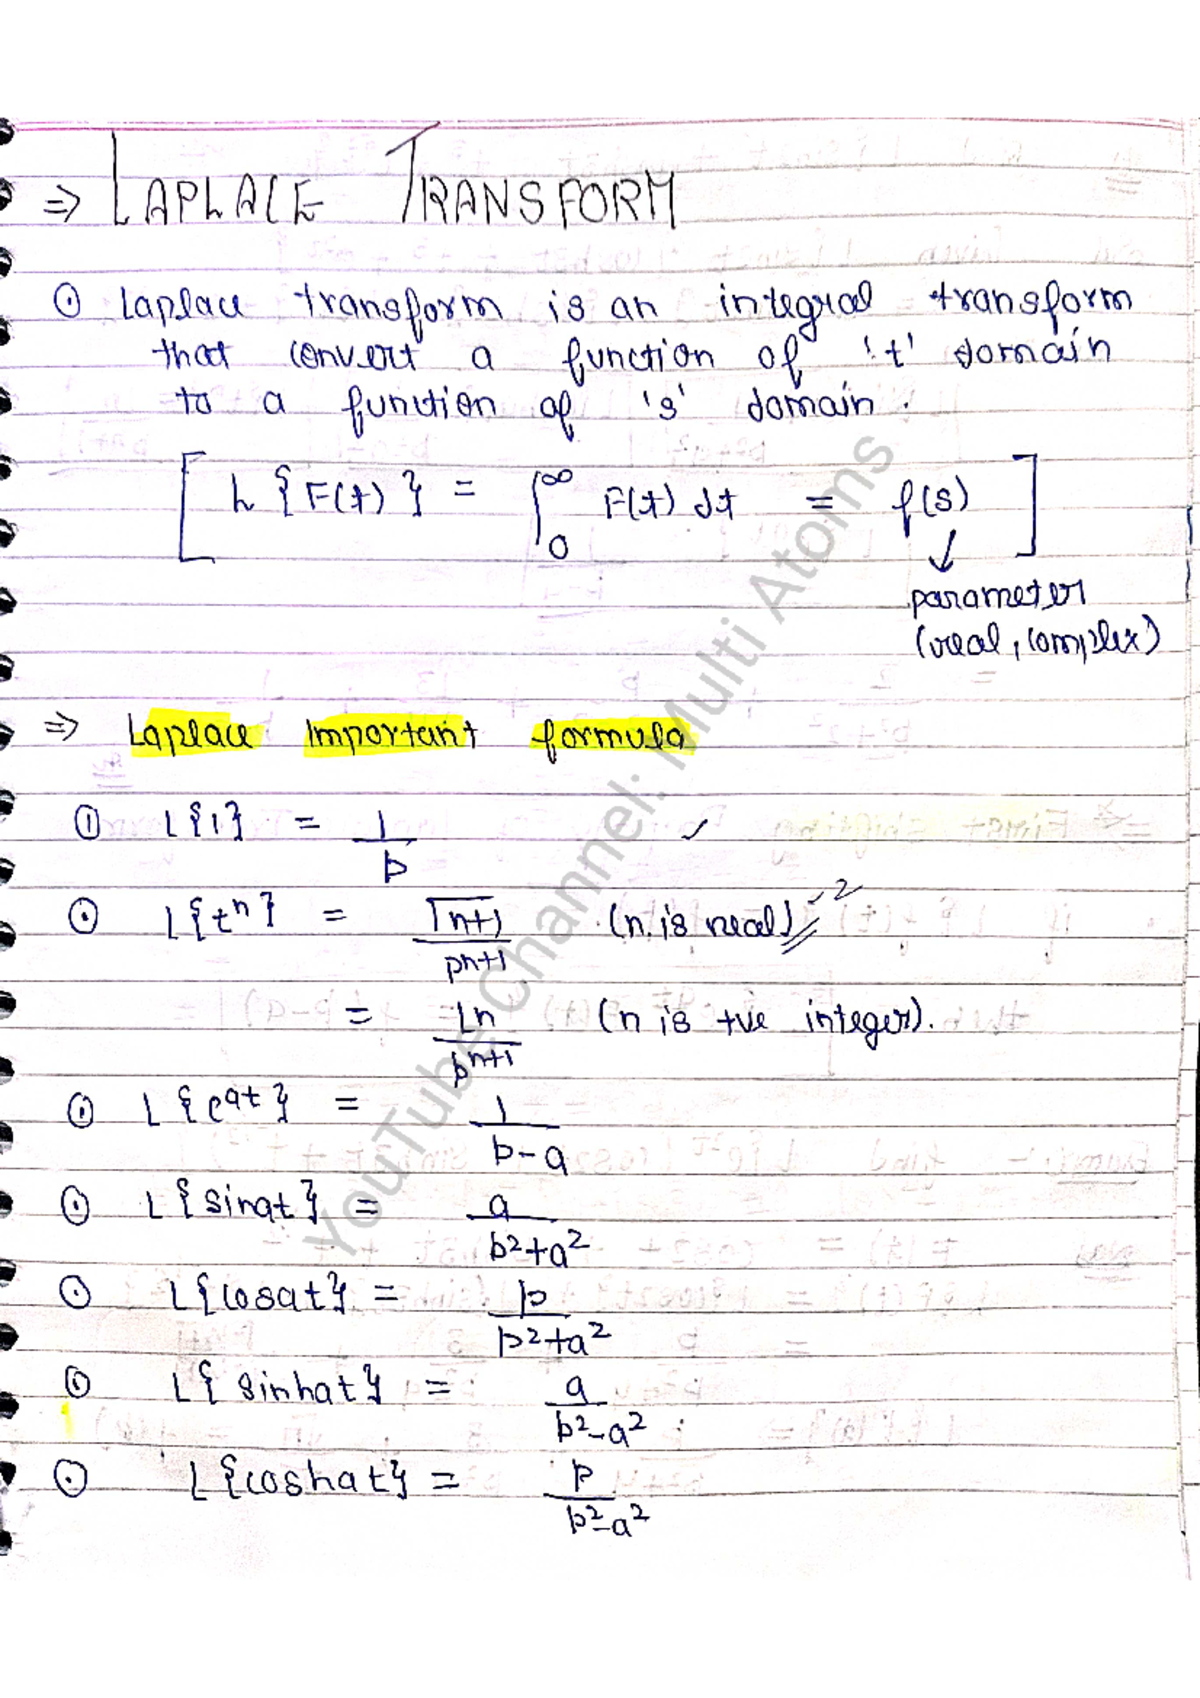 ⇒ LAPLACE TRANSFORM
⊙ Laplace transform is an integral transform
that convert a function of 't' domain
to a function of 's' domain.
[ L {F(t)} = ∫₀^∞ F(t) dt = f(s) ]
↓
parameter
(real, complex)
⇒ Laplace Important formula
① L{1} = 1/p ✓
⊙ L{tⁿ} = Γn+1/pⁿ⁺¹ (n is real)
= ∟n/pⁿ⁺¹ (n is +ve integer).
⊙ L{e^at} = 1/p-a
⊙ L{sinat} = a/p²+a²
⊙ L{cosat} = p/p²+a²
⊙ L{sinhat} = a/p²-a²
⊙ L{coshat} = p/p²-a²
YouTube Channel: Multi Atoms